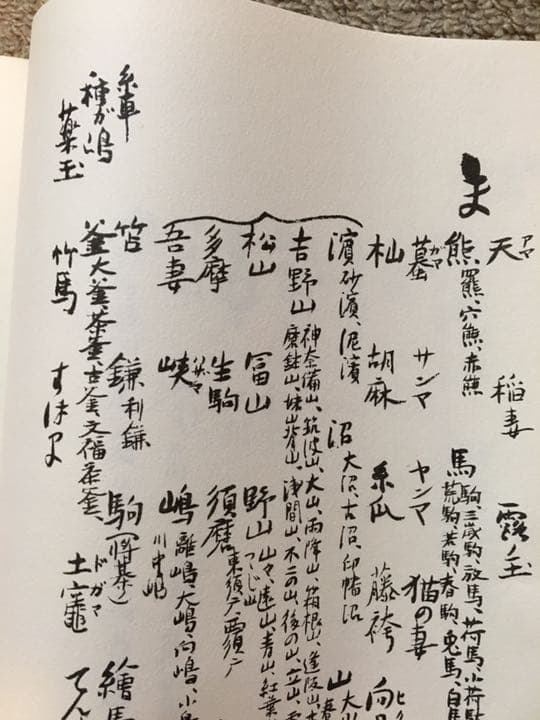 ま
天 アマ 稲妻 露の玉
熊 羆、穴熊、赤熊 馬 駒、三歳駒、放馬、荷馬、小荷駄
荒駒、若駒、春駒、兎馬、白馬
蟇 ガマ サンマ ヤンマ 猫の妻
杣 胡麻 糸瓜 藤袴 向
濱 砂濱、泥濱 沼 大沼、古沼、印幡沼 山
吉野山 神奈備山、筑波山、大山、雨降山、箱根山、逢阪山
浅間山、不二の山、後の山、立山
松山 冨山 野山 山々、遠山、青山、紅葉
つくし山
多摩 生駒 須磨 東須磨、西須磨
吾妻 峡 嶋 離嶋、大嶋、向嶋、小島
川中嶋
笘 鎌 利鎌 駒(将棊) 繪馬
釜 大釜、茶釜、古釜、文福茶釜、 土竈 ドガマ
竹馬
糸車
種が嶋
薬玉